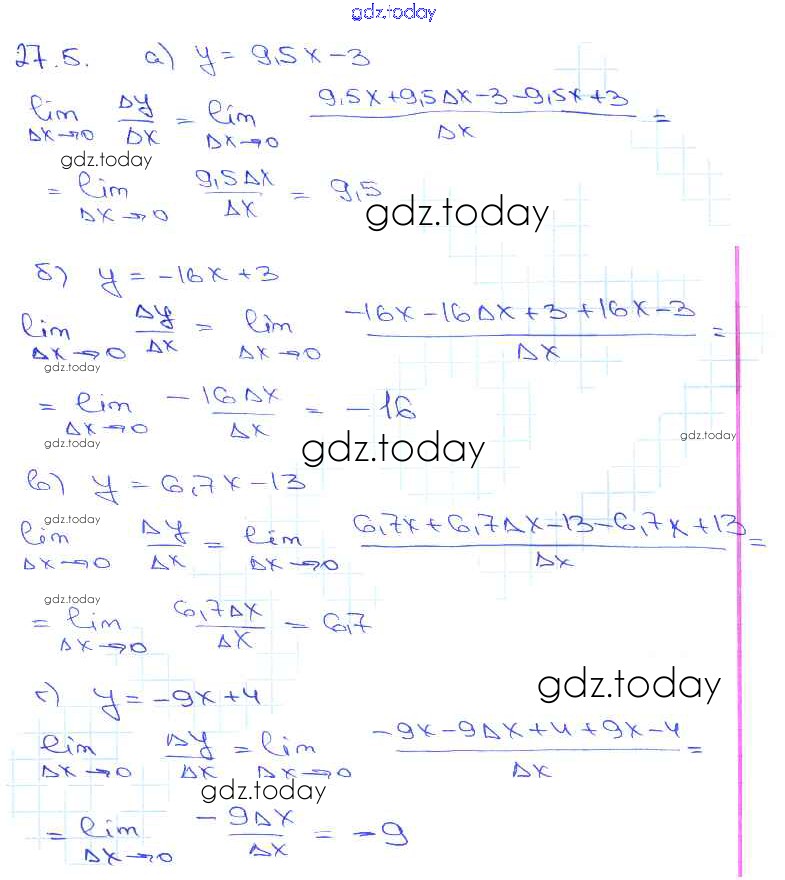 gdz.today
27.5. а) y = 9,5x - 3
lim Δx→0 Δy/Δx = lim Δx→0 (9,5x + 9,5Δx - 3 - 9,5x + 3)/Δx =
gdz.today
= lim Δx→0 9,5Δx/Δx = 9,5
gdz.today
б) y = -16x + 3
lim Δx→0 Δy/Δx = lim Δx→0 (-16x - 16Δx + 3 + 16x - 3)/Δx =
gdz.today
= lim Δx→0 -16Δx/Δx = -16
gdz.today
gdz.today
gdz.today
в) y = 6,7x - 13
gdz.today
lim Δx→0 Δy/Δx = lim Δx→0 (6,7x + 6,7Δx - 13 - 6,7x + 13)/Δx =
gdz.today
= lim Δx→0 6,7Δx/Δx = 6,7
г) y = -9x + 4
gdz.today
lim Δx→0 Δy/Δx = lim Δx→0 (-9x - 9Δx + 4 + 9x - 4)/Δx =
gdz.today
= lim Δx→0 -9Δx/Δx = -9